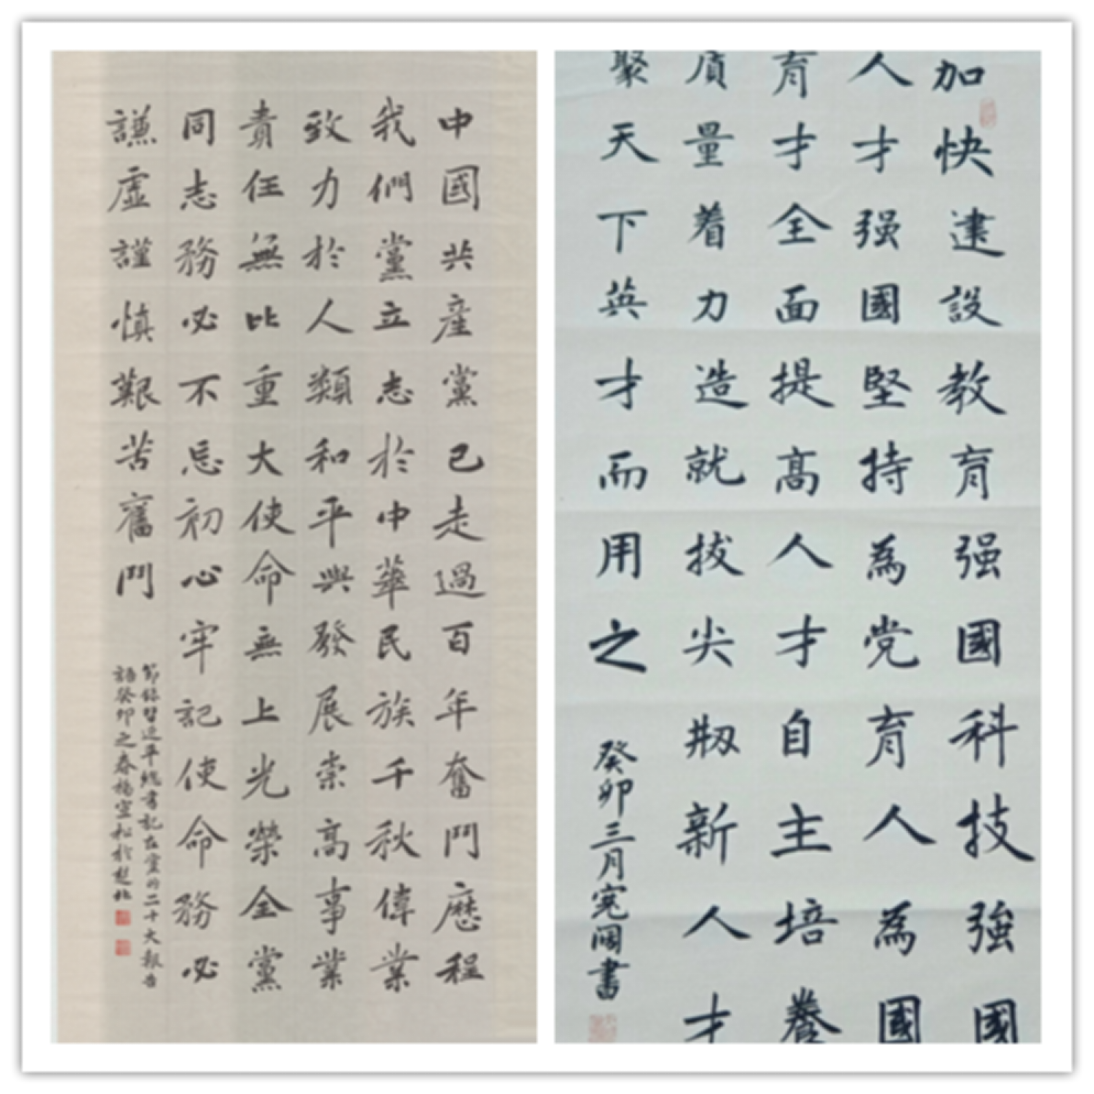 中國共産黨已走過百年奮鬥歷程
我們黨立志於中華民族千秋偉業
致力於人類和平與發展崇高事業
責任無比重大使命無上光榮全黨
同志務必不忘初心牢記使命務必
謙虛謹慎艱苦奮鬥
節錄習近平總書記在黨的二十大報告
語癸卯之春楊松於楚北
加快建設教育强國科技強國
人才强國堅持為党育人為國
育才全面提高人才自主培養
質量着力造就拔尖刱新人才
聚天下英才而用之
癸卯三月書